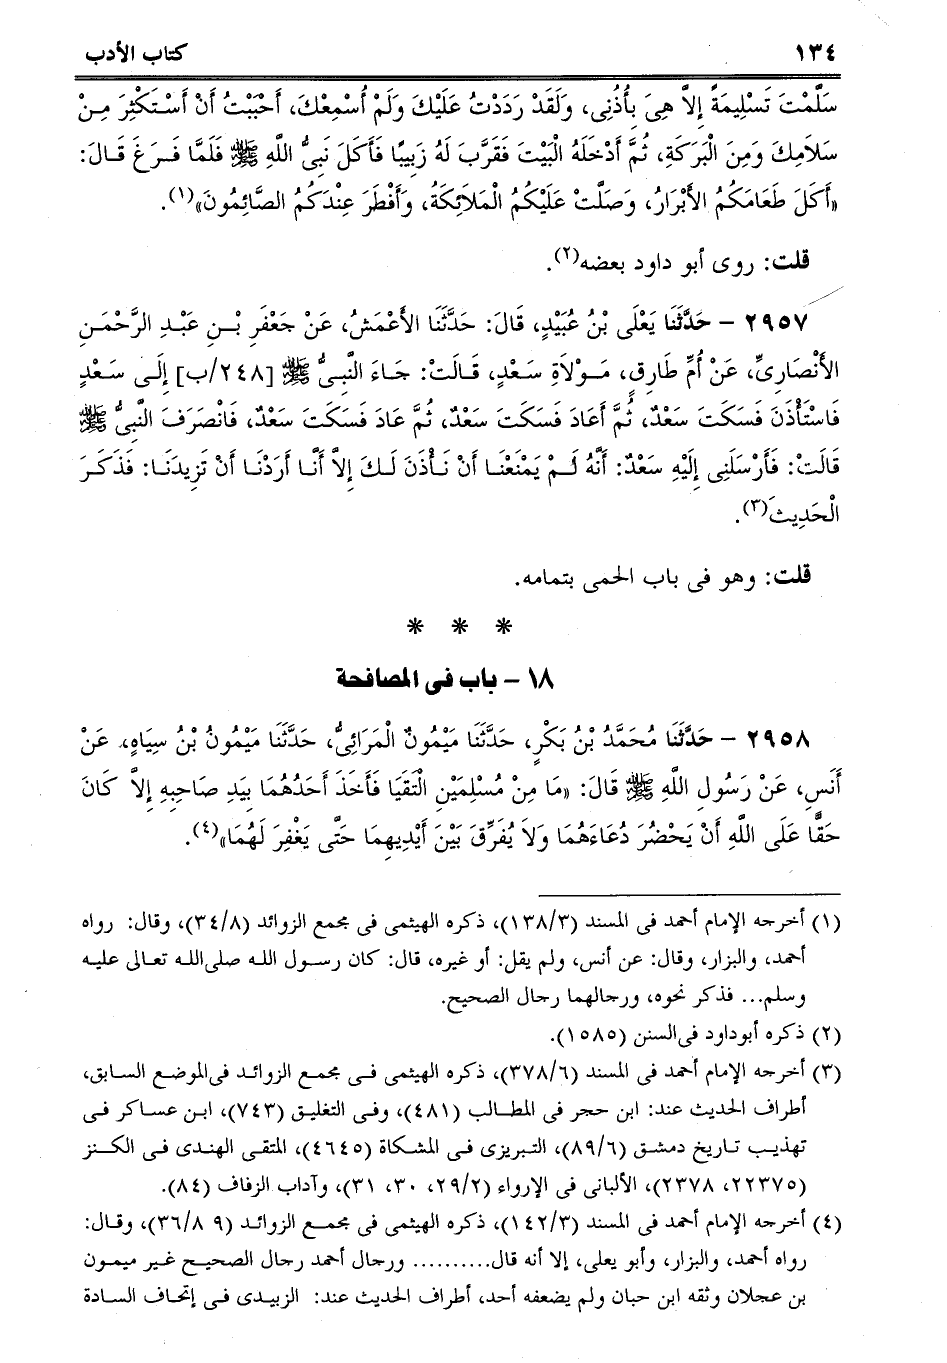 ١٣٤ كتاب الأدب
سَلَّمْتَ تَسْلِيمَةً إِلاَّ هِىَ بِأُذُنِى، وَلَقَدْ رَدَدْتُ عَلَيْكَ وَلَمْ أُسْمِعْكَ، أَحْبَبْتُ أَنْ أَسْتَكْثِرَ مِنْ
سَلاَمِكَ وَمِنَ الْبَرَكَةِ، ثُمَّ أَدْخَلَهُ الْبَيْتَ فَقَرَّبَ لَهُ زَبِيبًا فَأَكَلَ نَبِىُّ اللَّهِ ﷺ فَلَمَّا فَرَغَ قَالَ:
«أَكَلَ طَعَامَكُمُ الأَبْرَارُ، وَصَلَّتْ عَلَيْكُمُ الْمَلاَئِكَةُ، وَأَفْطَرَ عِنْدَكُمُ الصَّائِمُونَ»(١).
قلت: روى أبو داود بعضه(٢).
٢٩٥٧ – حَدَّثَنَا يَعْلَى بْنُ عُبَيْدٍ، قَالَ: حَدَّثَنَا الأَعْمَشُ، عَنْ جَعْفَرِ بْنِ عَبْدِ الرَّحْمَنِ
الأَنْصَارِىِّ، عَنْ أُمِّ طَارِقٍ، مَوْلاَةِ سَعْدٍ، قَالَتْ: جَاءَ النَّبِىُّ ﷺ [٢٤٨/ب] إِلَى سَعْدٍ
فَاسْتَأْذَنَ فَسَكَتَ سَعْدٌ، ثُمَّ أَعَادَ فَسَكَتَ سَعْدٌ، ثُمَّ عَادَ فَسَكَتَ سَعْدٌ، فَانْصَرَفَ النَّبِىُّ ﷺ
قَالَتْ: فَأَرْسَلَنِى إِلَيْهِ سَعْدٌ: أَنَّهُ لَمْ يَمْنَعْنَا أَنْ نَأْذَنَ لَكَ إِلاَّ أَنَّا أَرَدْنَا أَنْ تَزِيدَنَا: فَذَكَرَ
الْحَدِيثَ(٣).
قلت: وهو فى باب الحمى بتمامه.
* * *
١٨ – باب فى المصافحة
٢٩٥٨ – حَدَّثَنَا مُحَمَّدُ بْنُ بَكْرٍ، حَدَّثَنَا مَيْمُونٌ الْمَرَائِىُّ، حَدَّثَنَا مَيْمُونُ بْنُ سِيَاهٍ، عَنْ
أَنَسٍ، عَنْ رَسُولِ اللَّهِ ﷺ قَالَ: «مَا مِنْ مُسْلِمَيْنِ الْتَقَيَا فَأَخَذَ أَحَدُهُمَا بِيَدِ صَاحِبِهِ إِلاَّ كَانَ
حَقًّا عَلَى اللَّهِ أَنْ يَحْضُرَ دُعَاءَهُمَا وَلاَ يُفَرِّقَ بَيْنَ أَيْدِيهِمَا حَتَّى يَغْفِرَ لَهُمَا»(٤).
(١) أخرجه الإمام أحمد فى المسند (١٣٨/٣)، ذكره الهيثمى فى مجمع الزوائد (٣٤/٨)، وقال: رواه
أحمد، والبزار، وقال: عن أنس، ولم يقل: أو غيره، قال: كان رسول الله صلى الله تعالى عليه
وسلم... فذكر نحوه، ورجالهما رجال الصحيح.
(٢) ذكره أبوداود فى السنن (١٥٨٥).
(٣) أخرجه الإمام أحمد فى المسند (٣٧٨/٦)، ذكره الهيثمى فى مجمع الزوائد فى الموضع السابق،
أطراف الحديث عند: ابن حجر فى المطالب (٤٨١)، وفى التغليق (٧٤٣)، ابن عساكر فى
تهذيب تاريخ دمشق (٨٩/٦)، التبريزى فى المشكاة (٤٦٤٥)، المتقى الهندى فى الكنز
(٢٢٣٧٥، ٢٣٧٨)، الألبانى فى الإرواء (٢٩/٢، ٣٠، ٣١)، وآداب الزفاف (٨٤).
(٤) أخرجه الإمام أحمد فى المسند (١٤٢/٣)، ذكره الهيثمى فى مجمع الزوائد (٩ ٣٦/٨)، وقال:
رواه أحمد، والبزار، وأبو يعلى، إلا أنه قال.......... ورجال أحمد رحال الصحيح غير ميمون
بن عجلان وثقه ابن حبان ولم يضعفه أحد، أطراف الحديث عند: الزبيدى فى إتحاف السادة